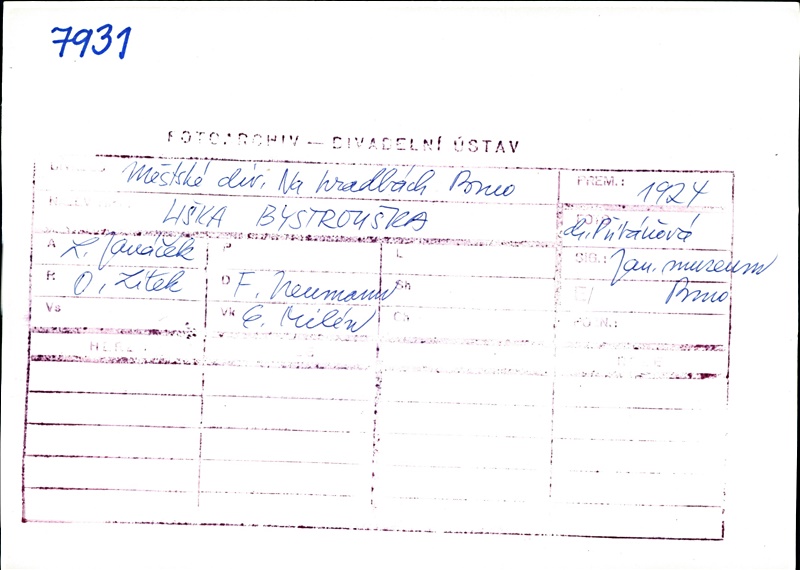 7931
FOTOARCHIV — DIVADELNÍ ÚSTAV
Městské div. Na hradbách Brno
PREM.: 1924
LIŠKA BYSTROUŠKA
A L. Janáček
P
L
SIG.: Jan. muzeum
Brno
R O. Zítek
D F. Neumann
Sh
Vs
Vk E. Milén
Ch